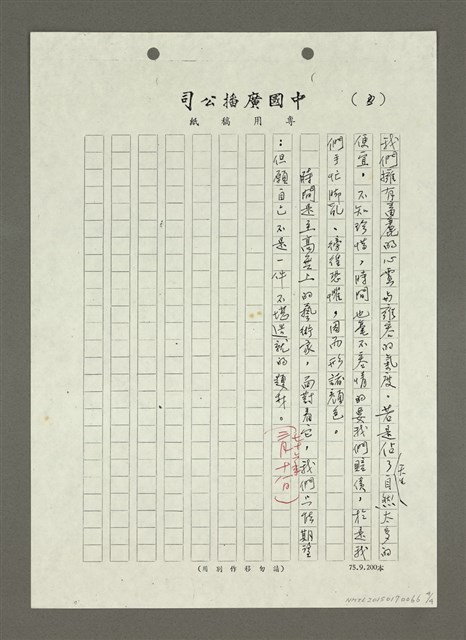 中國廣播公司
專用稿紙
(3)
我們擁有富麗的心靈與雍容的氣度。若是佔了自然太多的
天生
便宜，不知珍惜，時間也毫不容情的要我們賠償，於是我
們手忙腳亂、徬徨恐懼，因而形諸顏色。
時間是至高無上的藝術家，面對着它，我們只能期望
：但願自己不是一件不堪造就的頑材。
七十六年
三月十一日
(請勿移作別用)
75.9.200本
NMTL20150170066 4/4